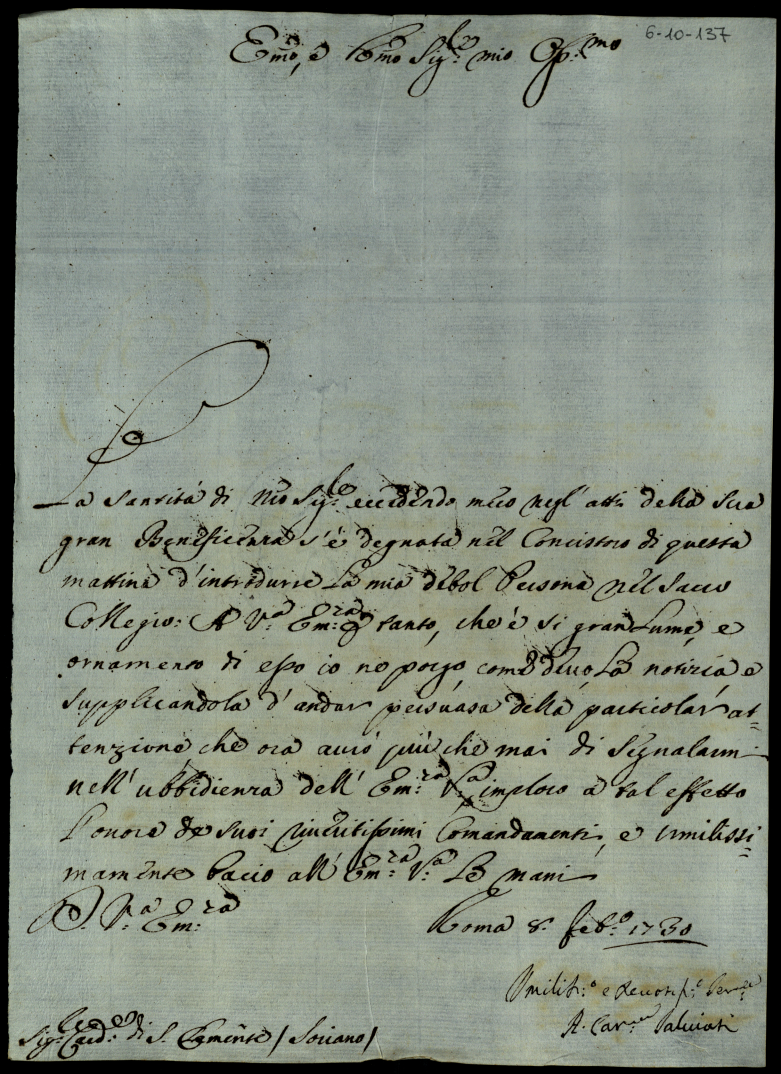 6-10-137
Em̃o, e R̃mo Sig.re mio Oss.mo
La Santità di Nrõ Sig.re eccedendo meco negl'atti della Sua
gran Beneficenza s'è degnata nel Concistoro di questa
mattina d'introdurre La mia debol Persona nel Sacro
Collegio: A V.a Em.za ptanto, che è si gran Lume, e
ornamento di esso io ne porgo, come devo La notizia e
supplicandola d'andar persuasa della particolar at=
tenzione che ora avrò più che mai di segnalarmi
nell'ubbidienza dell'Em.za V.a imploro a tal effetto
l'onore de suoi riveritissimi Comandamenti, e umilissi=
mamente bacio all'Em.za V.a Le mani
D. V.a Em.za
Roma 8. Feb.o 1730
Umiliss.o e Devotiss.o Ser.re
A. Car.le Salviati
Sig.re Card.le di S. Clemente / Soriano /